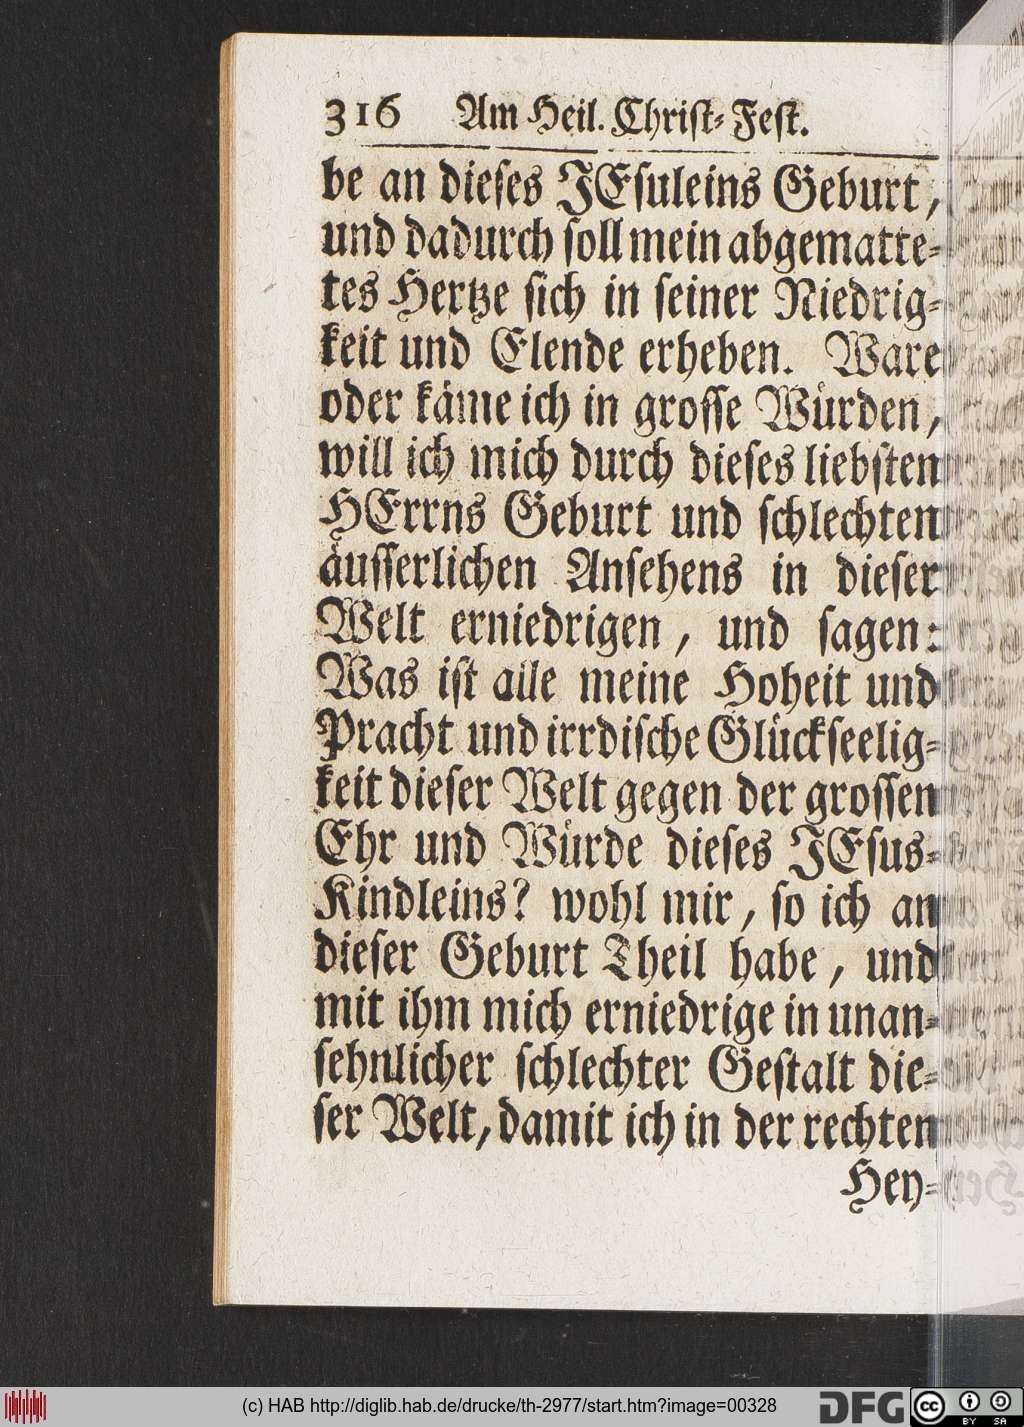 316 Am Heil. Christ-Fest.
be an dieses JEsuleins Geburt,
und dadurch soll mein abgematte-
tes Hertze sich in seiner Niedrig-
keit und Elende erheben. Ware
oder käme ich in grosse Würden,
will ich mich durch dieses liebsten
HErrns Geburt und schlechten
äusserlichen Ansehens in dieser
Welt erniedrigen, und sagen:
Was ist alle meine Hoheit und
Pracht und irrdische Glückseelig-
keit dieser Welt gegen der grossen
Ehr und Würde dieses JEsus-
Kindleins? wohl mir, so ich an
dieser Geburt Theil habe, und
mit ihm mich erniedrige in unan-
sehnlicher schlechter Gestalt die-
ser Welt, damit ich in der rechten
Hey-
(c) HAB http://diglib.hab.de/drucke/th-2977/start.htm?image=00328
DFG
cc
BY SA